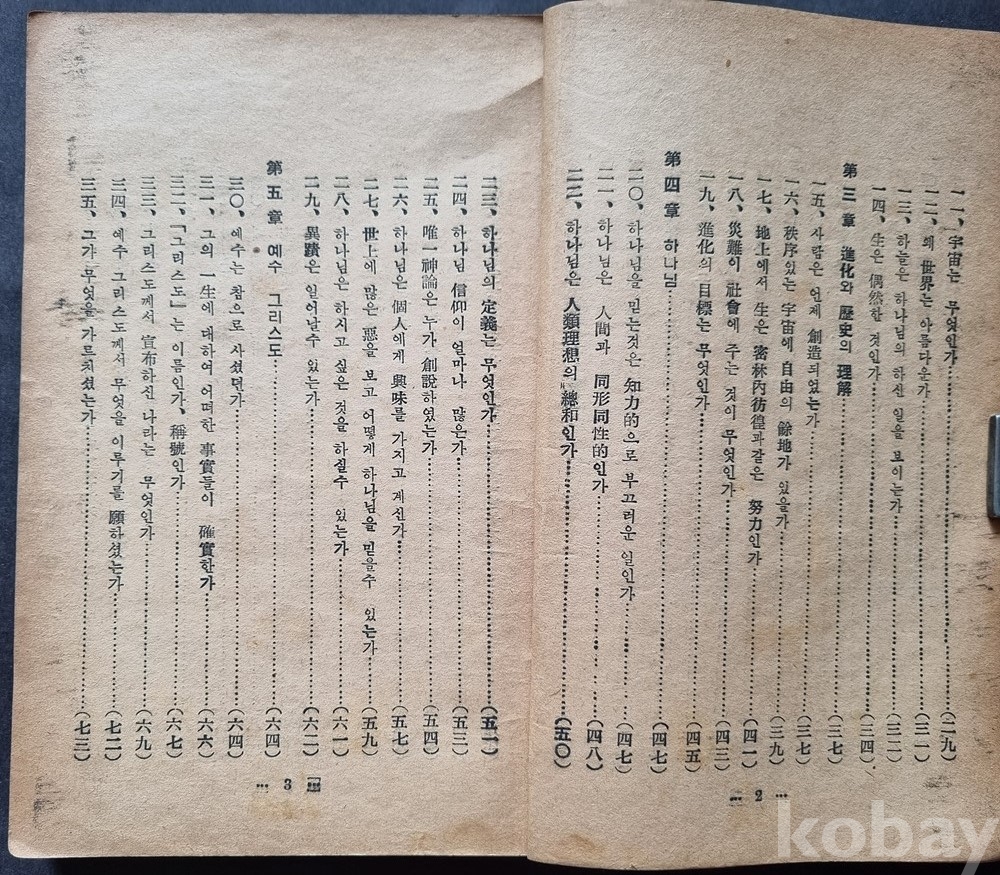 一一、宇宙는 무엇인가……(二九)
一二、웨 世界는 아름다운가……(三一)
一三、하늘은 하나님의 하신 일을 보이는가……(三二)
一四、生은 偶然한 것인가……(三四)
第三章 進化와 歷史의 理解……(三七)
一五、사람은 언제 創造되었는가……(三七)
一六、秩序있는 宇宙에 自由의 餘地가 있을가……(三九)
一七、地上에서 生은 密林內彷徨과같은 努力인가……(四一)
一八、災難이 社會에 주는 것이 무엇인가……(四三)
一九、進化의 目標는 무엇인가……(四五)
第四章 하나님……(四七)
二〇、하나님을 믿는것은 知力的으로 부끄러운 일인가……(四七)
二一、하나님은 人間과 同形同性的인가……(四八)
二二、하나님은 人類理想의 總和인가……(五〇)
… 2 …
二三、하나님의 定義는 무엇인가……(五一)
二四、하나님 信仰이 얼마나 많은가……(五三)
二五、唯一神論은 누가 創說하였는가……(五四)
二六、하나님은 個人에게 興味를 가지고 계신가……(五七)
二七、世上에 많은 惡을 보고 어떻게 하나님을 믿을수 있는가……(五九)
二八、하나님은 하지고 싶은 것을 하실수 있는가……(六一)
二九、異蹟은 일어날수 있는가……(六二)
第五章 예수 그리스도……(六四)
三〇、예수는 참으로 사셨던가……(六四)
三一、그의 一生에 대하여 어떠한 事實들이 確實한가……(六六)
三二、「그리스도」는 이름인가、稱號인가……(六七)
三三、그리스도께서 宣布하신 나라는 무엇인가……(六九)
三四、예수 그리스도께서 무엇을 이루기를 願하셨는가……(七二)
三五、그가 무엇을 가르치셨는가……(七三)
… 3 …
kobay